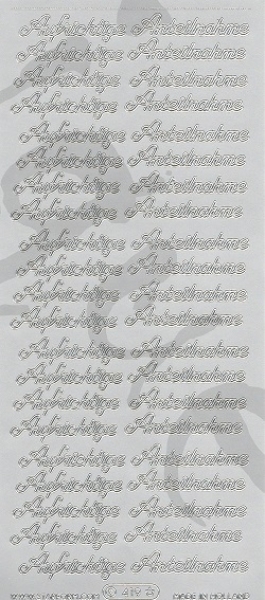 Aufrichtige Anteilnahme
Aufrichtige Anteilnahme
Aufrichtige Anteilnahme
Aufrichtige Anteilnahme
Aufrichtige Anteilnahme
Aufrichtige Anteilnahme
Aufrichtige Anteilnahme
Aufrichtige Anteilnahme
Aufrichtige Anteilnahme
Aufrichtige Anteilnahme
Aufrichtige Anteilnahme
Aufrichtige Anteilnahme
Aufrichtige Anteilnahme
Aufrichtige Anteilnahme
Aufrichtige Anteilnahme
Aufrichtige Anteilnahme
Aufrichtige Anteilnahme
Aufrichtige Anteilnahme
Aufrichtige Anteilnahme
Aufrichtige Anteilnahme
Aufrichtige Anteilnahme
MADE IN HOLLAND